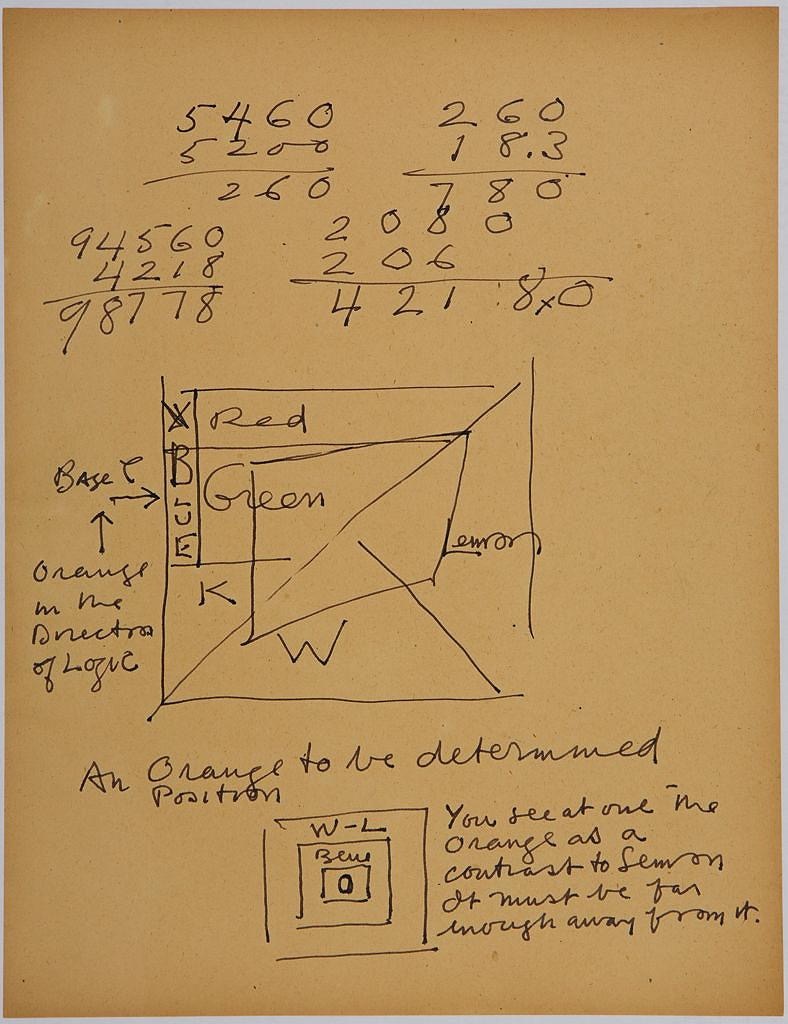 5460
5200
260
260
18.3
780
2080
206
421.8x0
94560
4218
98778
X Red
BLUE
Green
Base
Lemon
K
W
Orange
in the
Direction
of Logic
An Orange to be determined
Position
W-L
Blue
O
You see at one the
Orange as a
contrast to Lemon
It must be far
enough away from it.